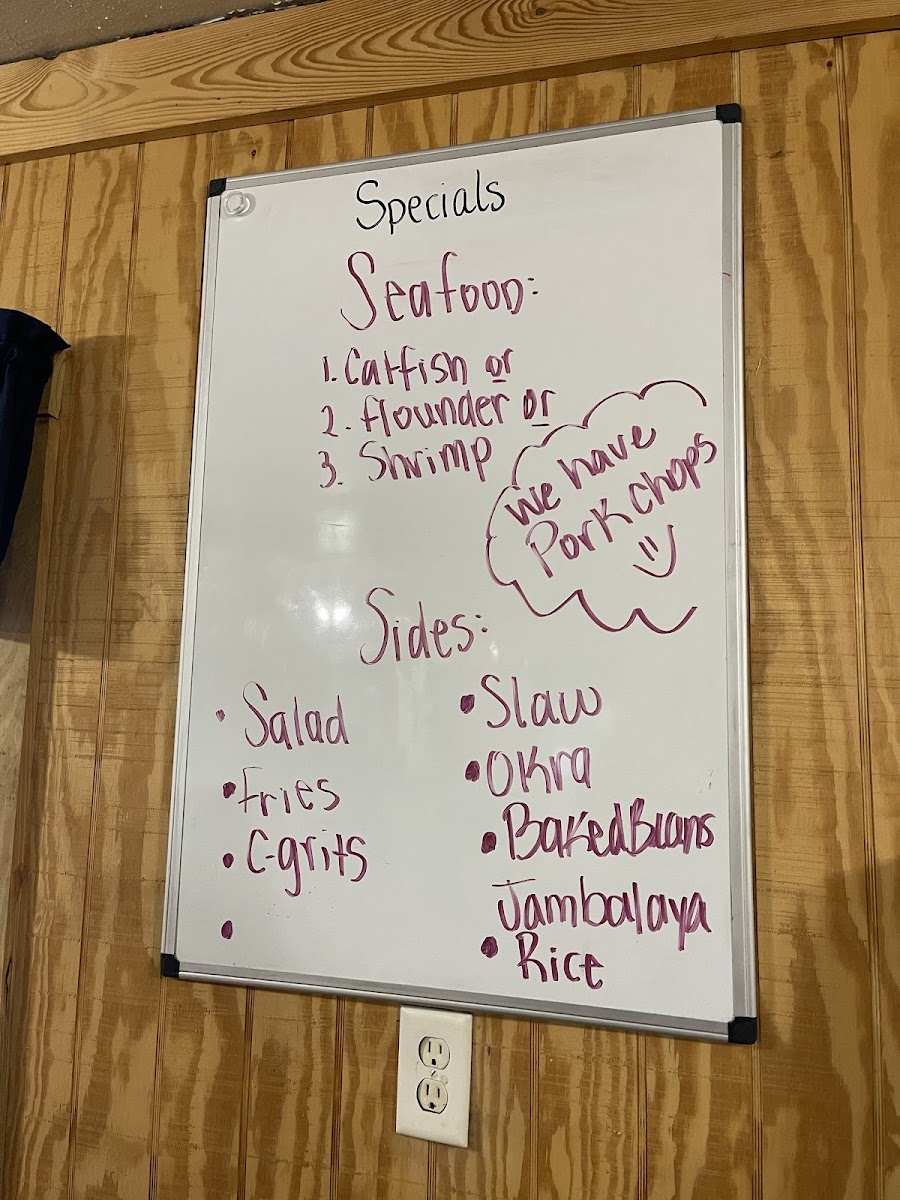 Specials
Seafood:
1. Catfish or
2. flounder or
3. Shrimp
We have
Pork Chops
Sides:
• Salad
• Fries
• C-grits
•
• Slaw
• Okra
• Baked Beans
Jambalaya
• Rice